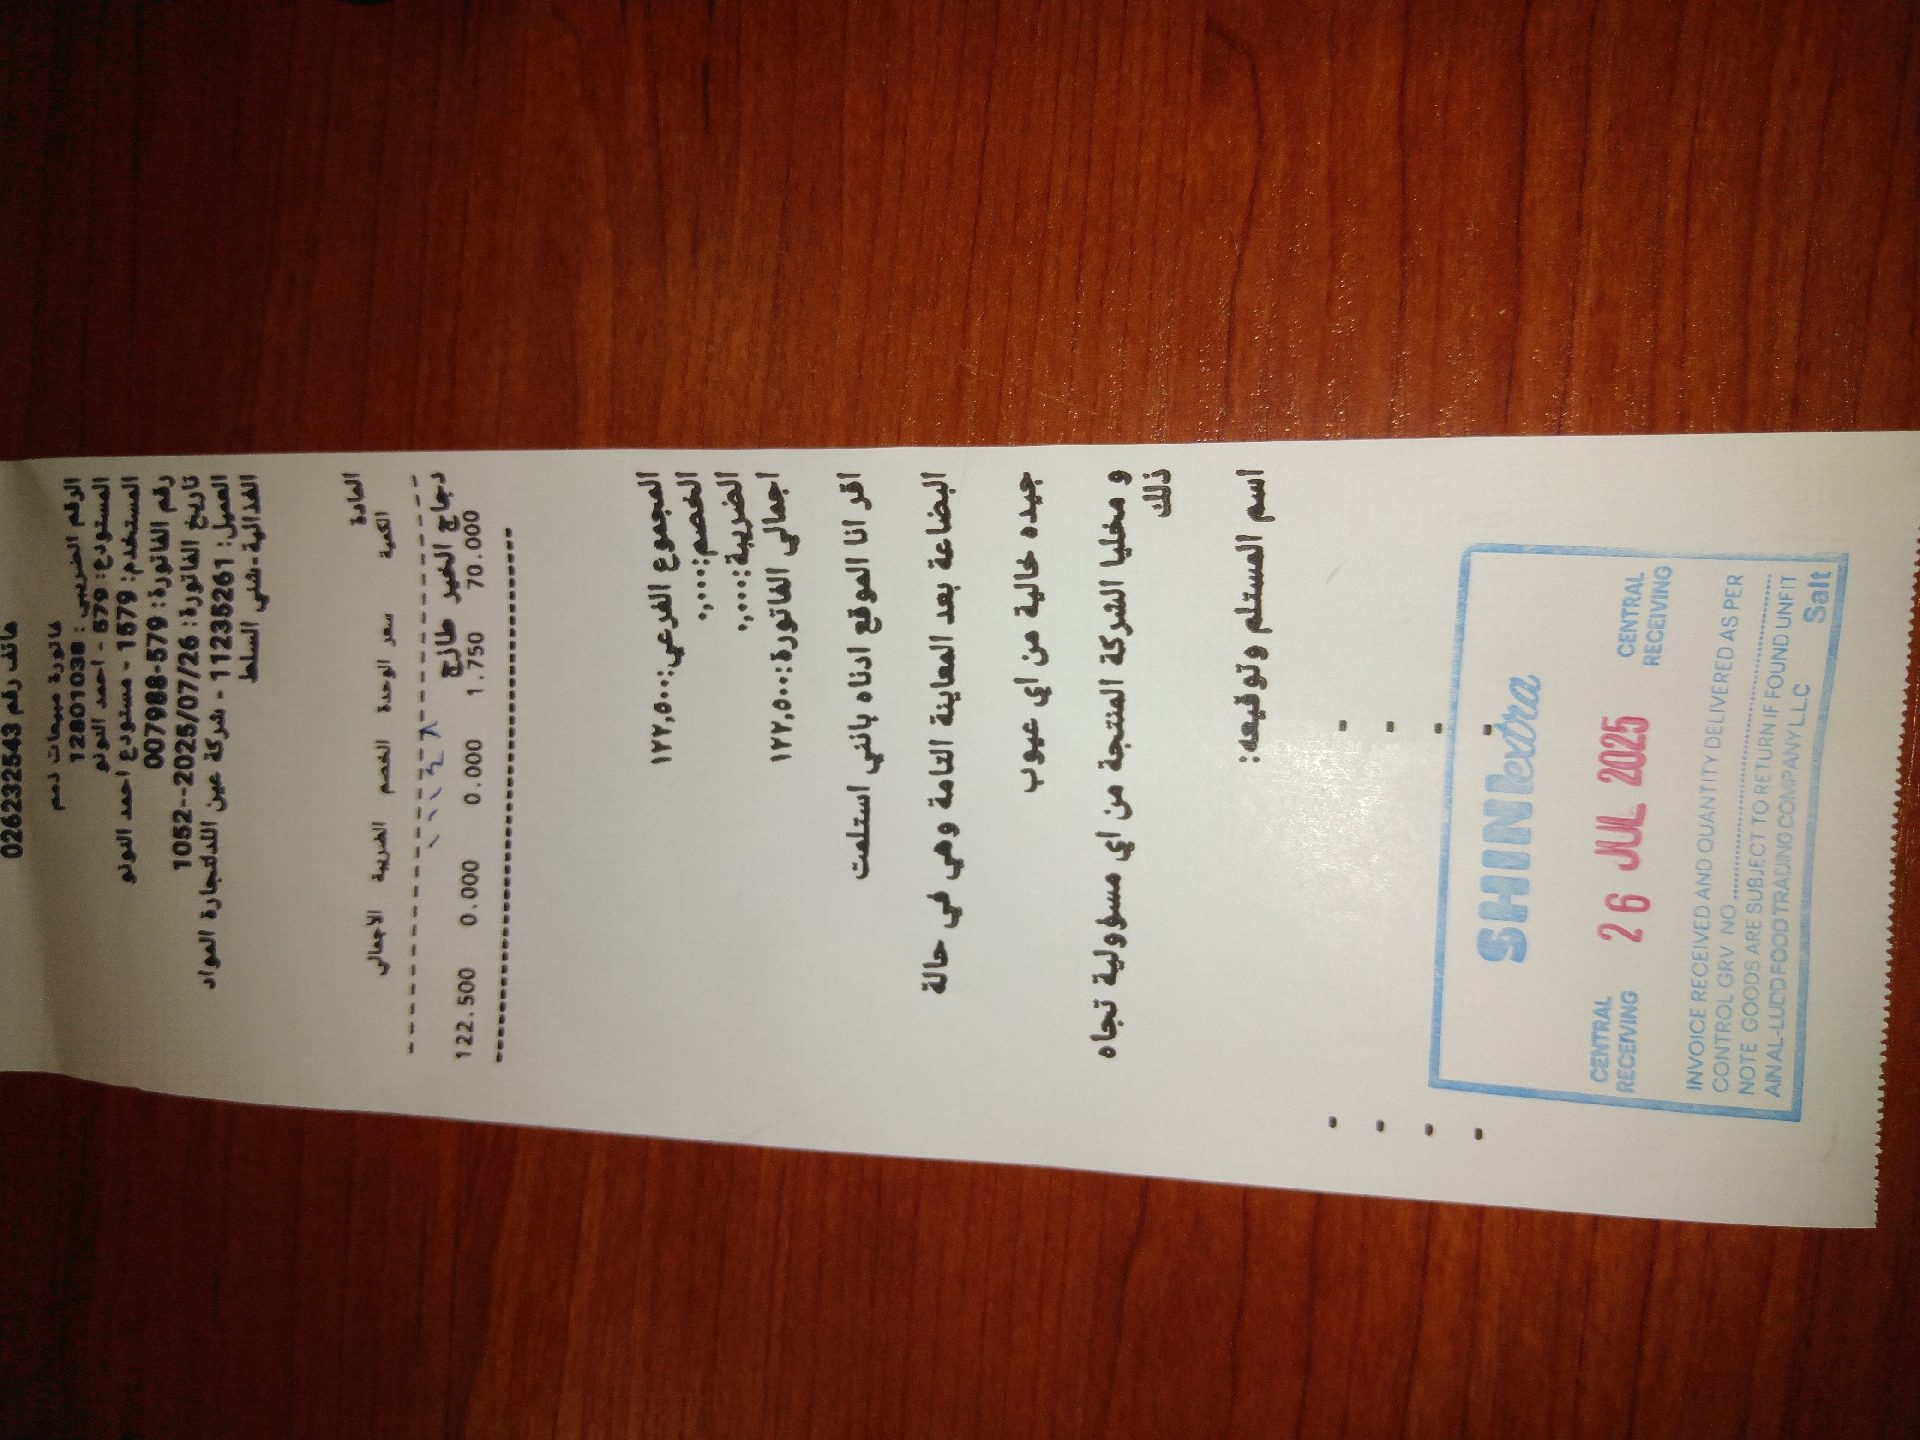 هاتف رقم 026232543
فاتورة مبيعات ذمم
الرقم الضريبي : 12801038
المستودع: 579 - احمد البونو
المستخدم: 1579 - مستودع احمد البونو
رقم الفاتورة: 007988-579
تاريخ الفاتورة: 2025/07/26--1052
العميل: 11235261 - شركة عين اللدلتجارة المواد
الغذائية-شني السلط
المادة
الكمية سعر الوحدة الخصم الضريبة الاجمالي
دجاج الخير طازج
70.000 1.750 0.000 0.000 122.500
المجموع الفرعي:١٢٢,٥٠٠
الخصم:٠,٠٠٠
الضريبة:٠,٠٠٠
اجمالي الفاتورة:١٢٢,٥٠٠
اقر انا الموقع ادناه بانني استلمت
البضاعة بعد المعاينة التامة وهي في حالة
جيده خالية من اي عيوب
و مخليا الشركة المنتجة من اي مسؤولية تجاه
ذلك
اسم المستلم وتوقيعه:
SHINIextra
CENTRAL RECEIVING 26 JUL 2025 CENTRAL RECEIVING
INVOICE RECEIVED AND QUANTITY DELIVERED AS PER
CONTROL GRV NO
NOTE GOODS ARE SUBJECT TO RETURN IF FOUND UNFIT
AIN AL-LUDD FOOD TRADING COMPANY LLC Salt